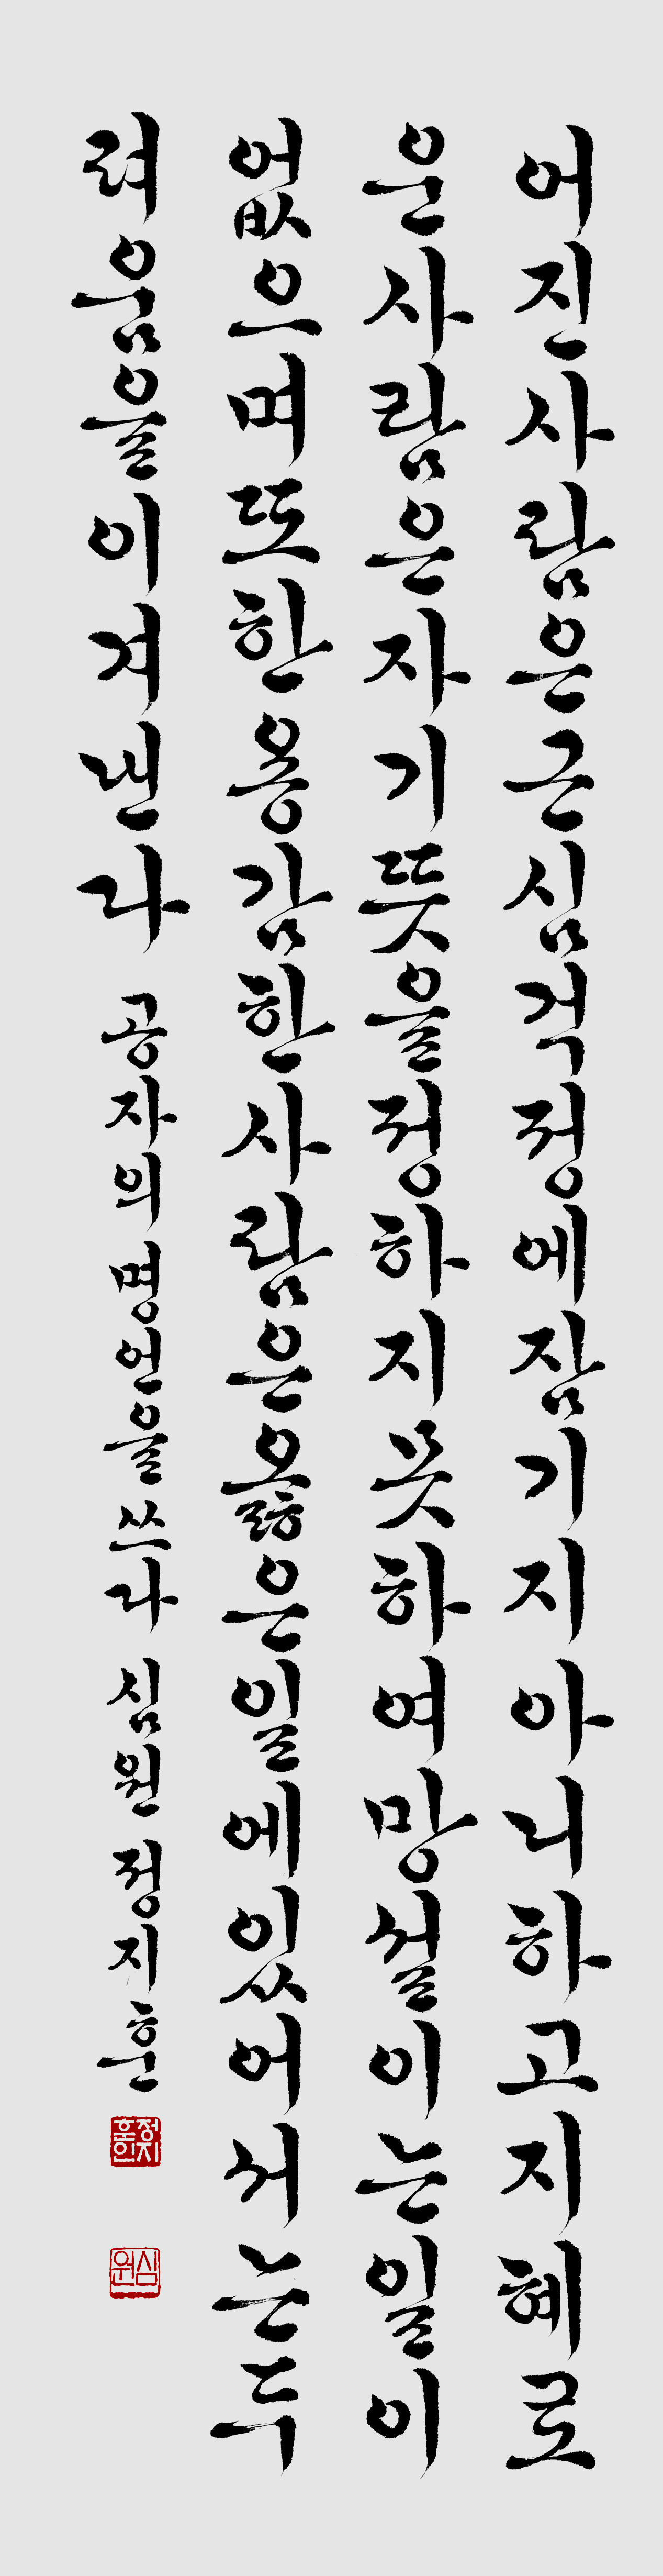 어진사람은근심걱정에잠기지아니하고지혜로
운사람은자기뜻을정하지못하여망설이는일이
없으며또한용감한사람은옳은일에있어서는두
려움을이겨낸다 공자의 명언을 쓰다 심원 정지훈
정지훈인
심원